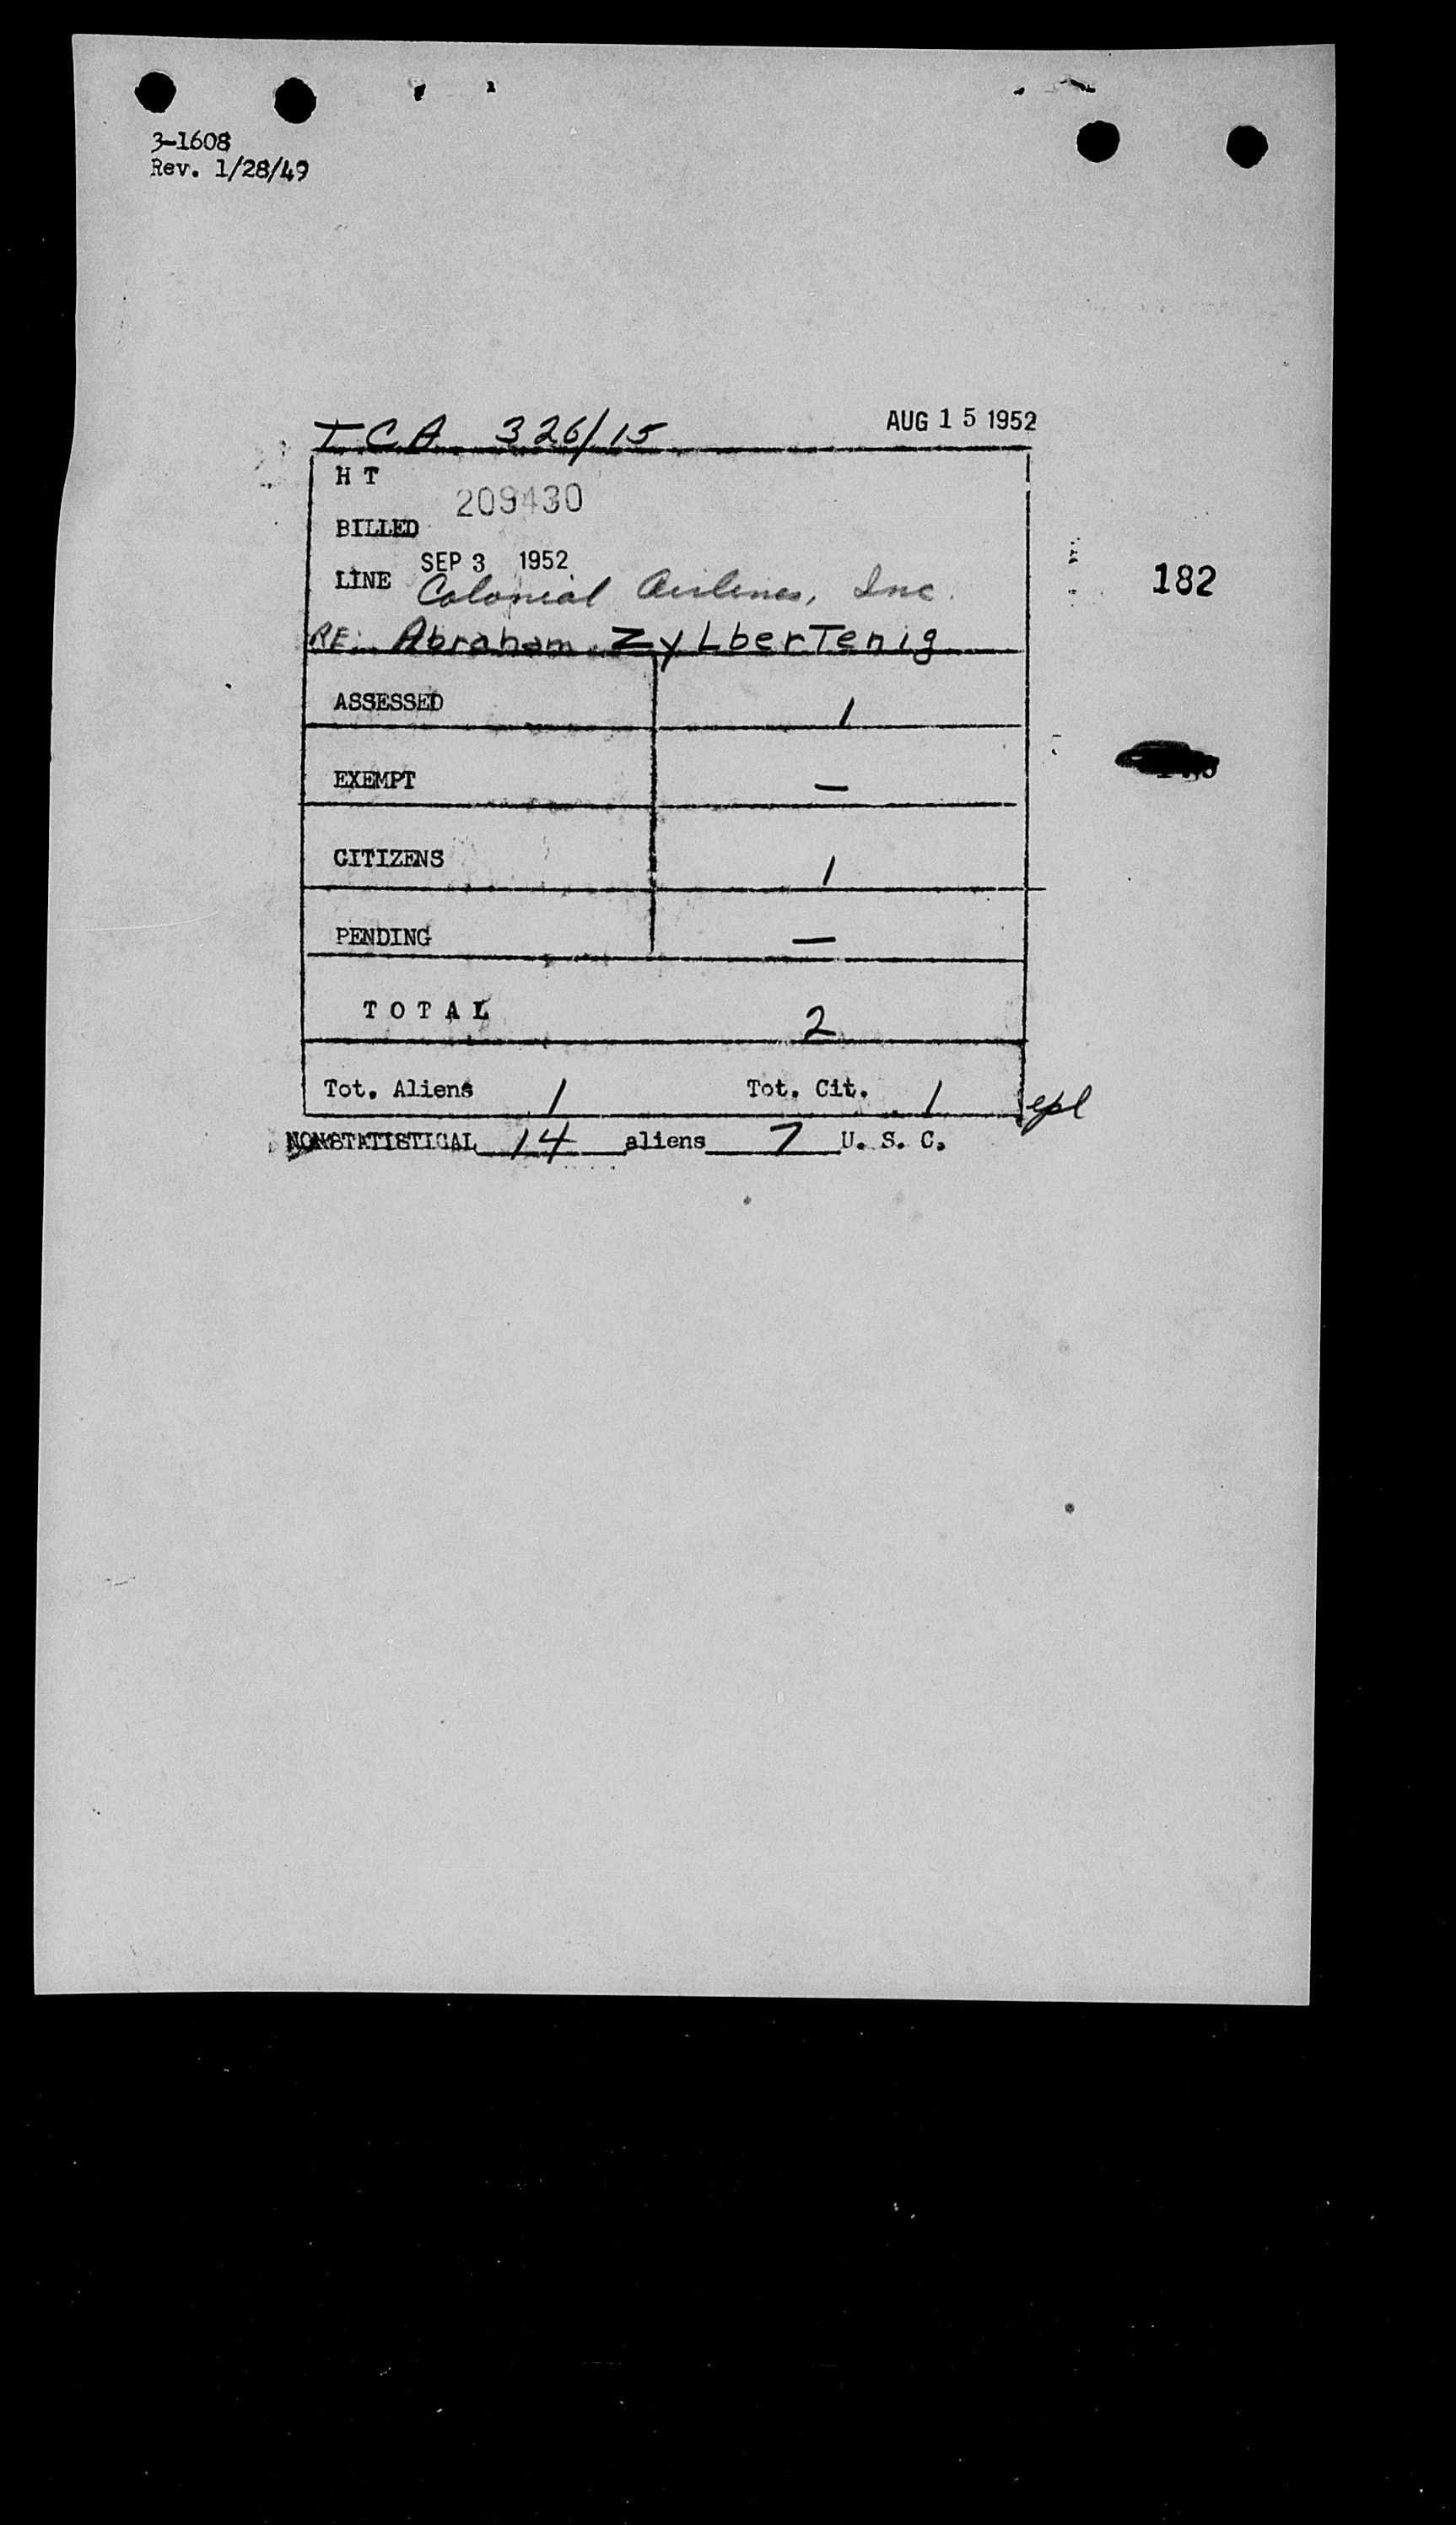 3-1608
Rev. 1/28/49
TCA 326/15 AUG 15 1952
H T
209430
BILLED
SEP 3 1952
LINE Colonial Airlines, Inc.
182
RE: Abraham ZyLberTenig
ASSESSED 1
EXEMPT —
CITIZENS 1
PENDING —
T O T A L 2
Tot. Aliens 1 Tot. Cit. 1 epl
NONSTATISTICAL 14 aliens 7 U. S. C.